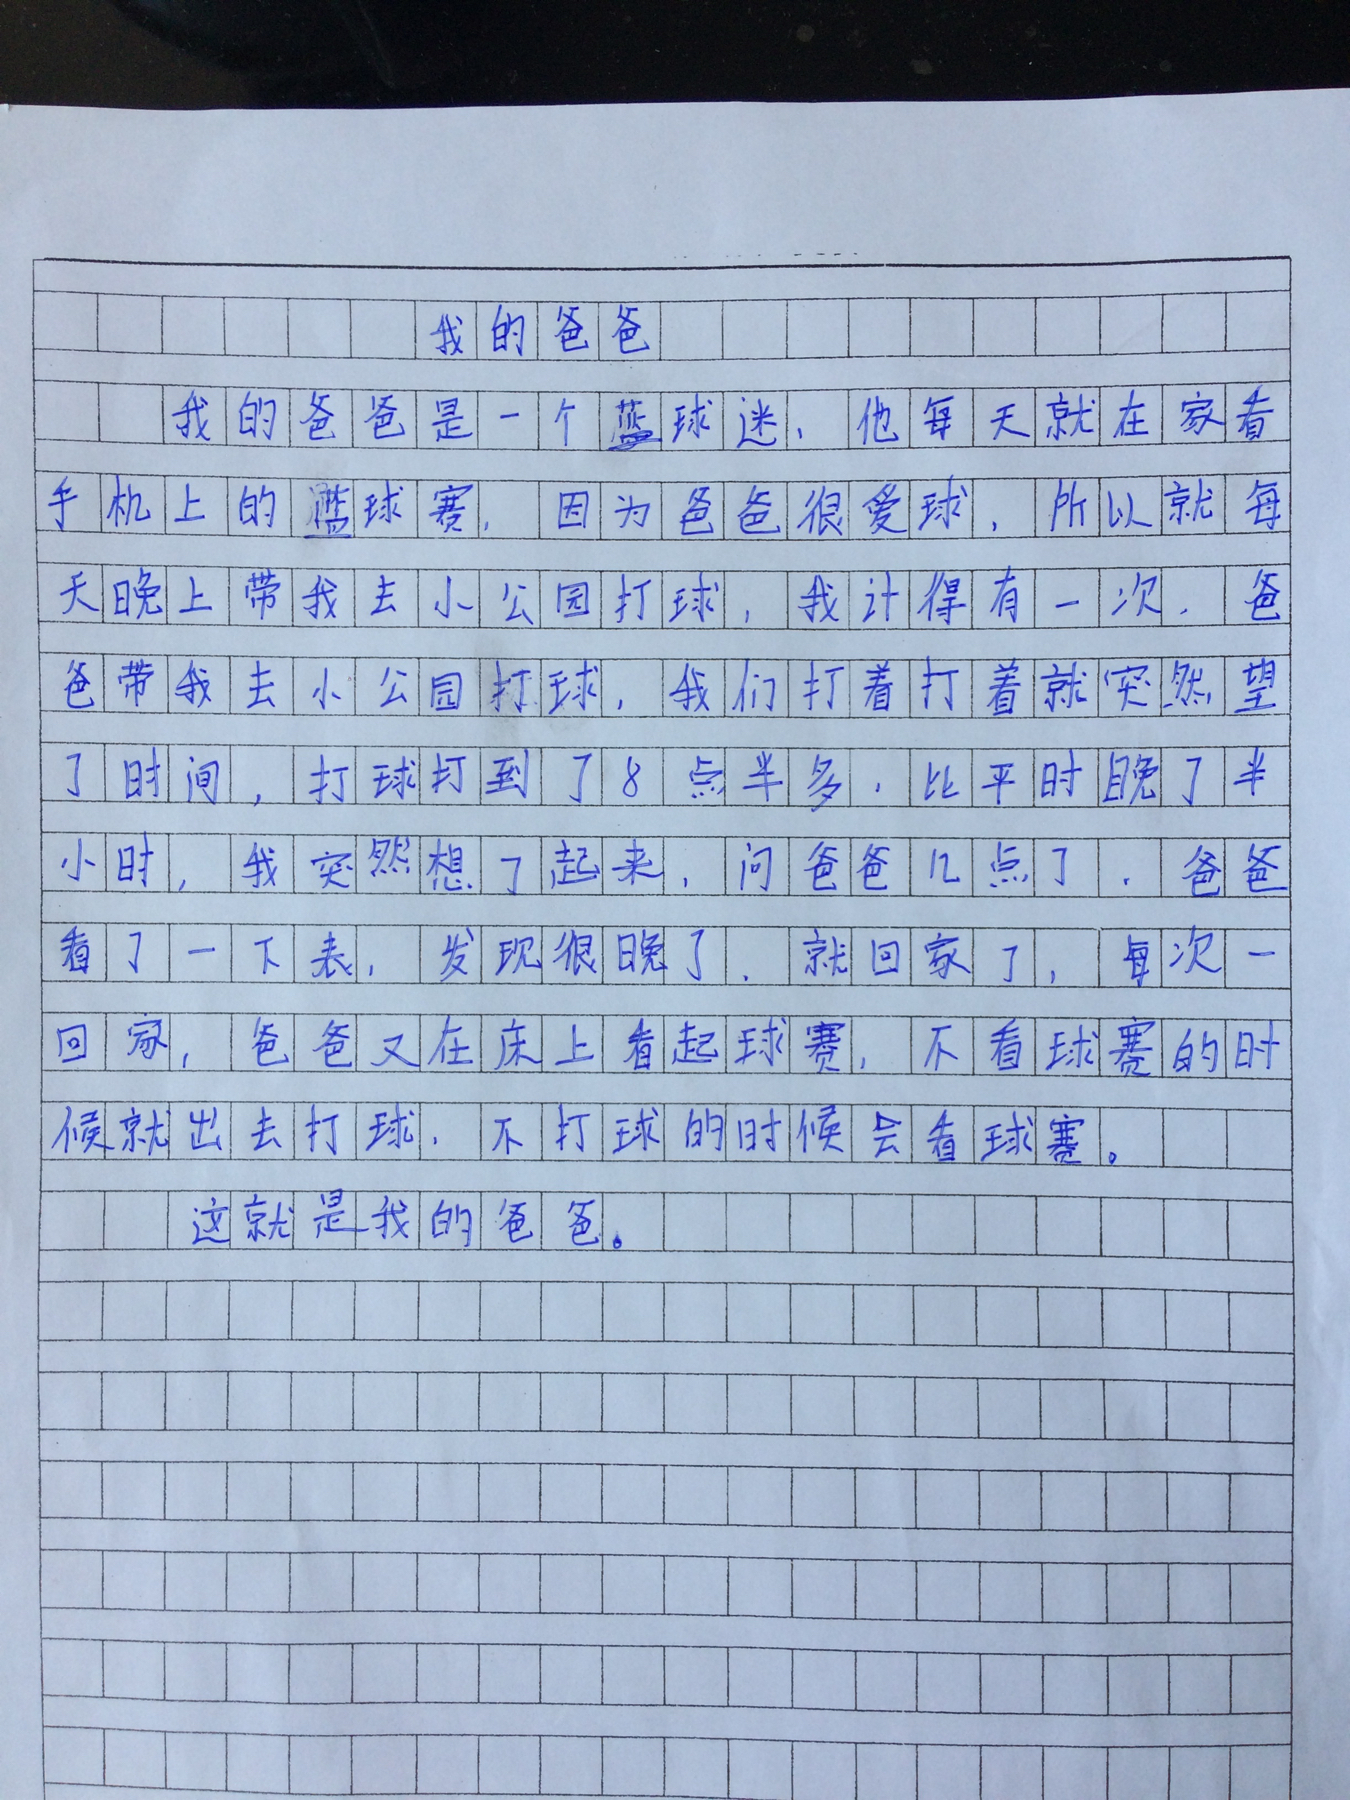 我的爸爸
我的爸爸是一个蓝球迷，他每天就在家看
手机上的蓝球赛，因为爸爸很爱球，所以就每
天晚上带我去小公园打球，我计得有一次，爸
爸带我去小公园打球，我们打着打着就突然望
了时间，打球打到了8点半多，比平时晚了半
小时，我突然想了起来，问爸爸几点了，爸爸
看了一下表，发现很晚了，就回家了，每次一
回家，爸爸又在床上看起球赛，不看球赛的时
候就出去打球，不打球的时候会看球赛。
这就是我的爸爸。